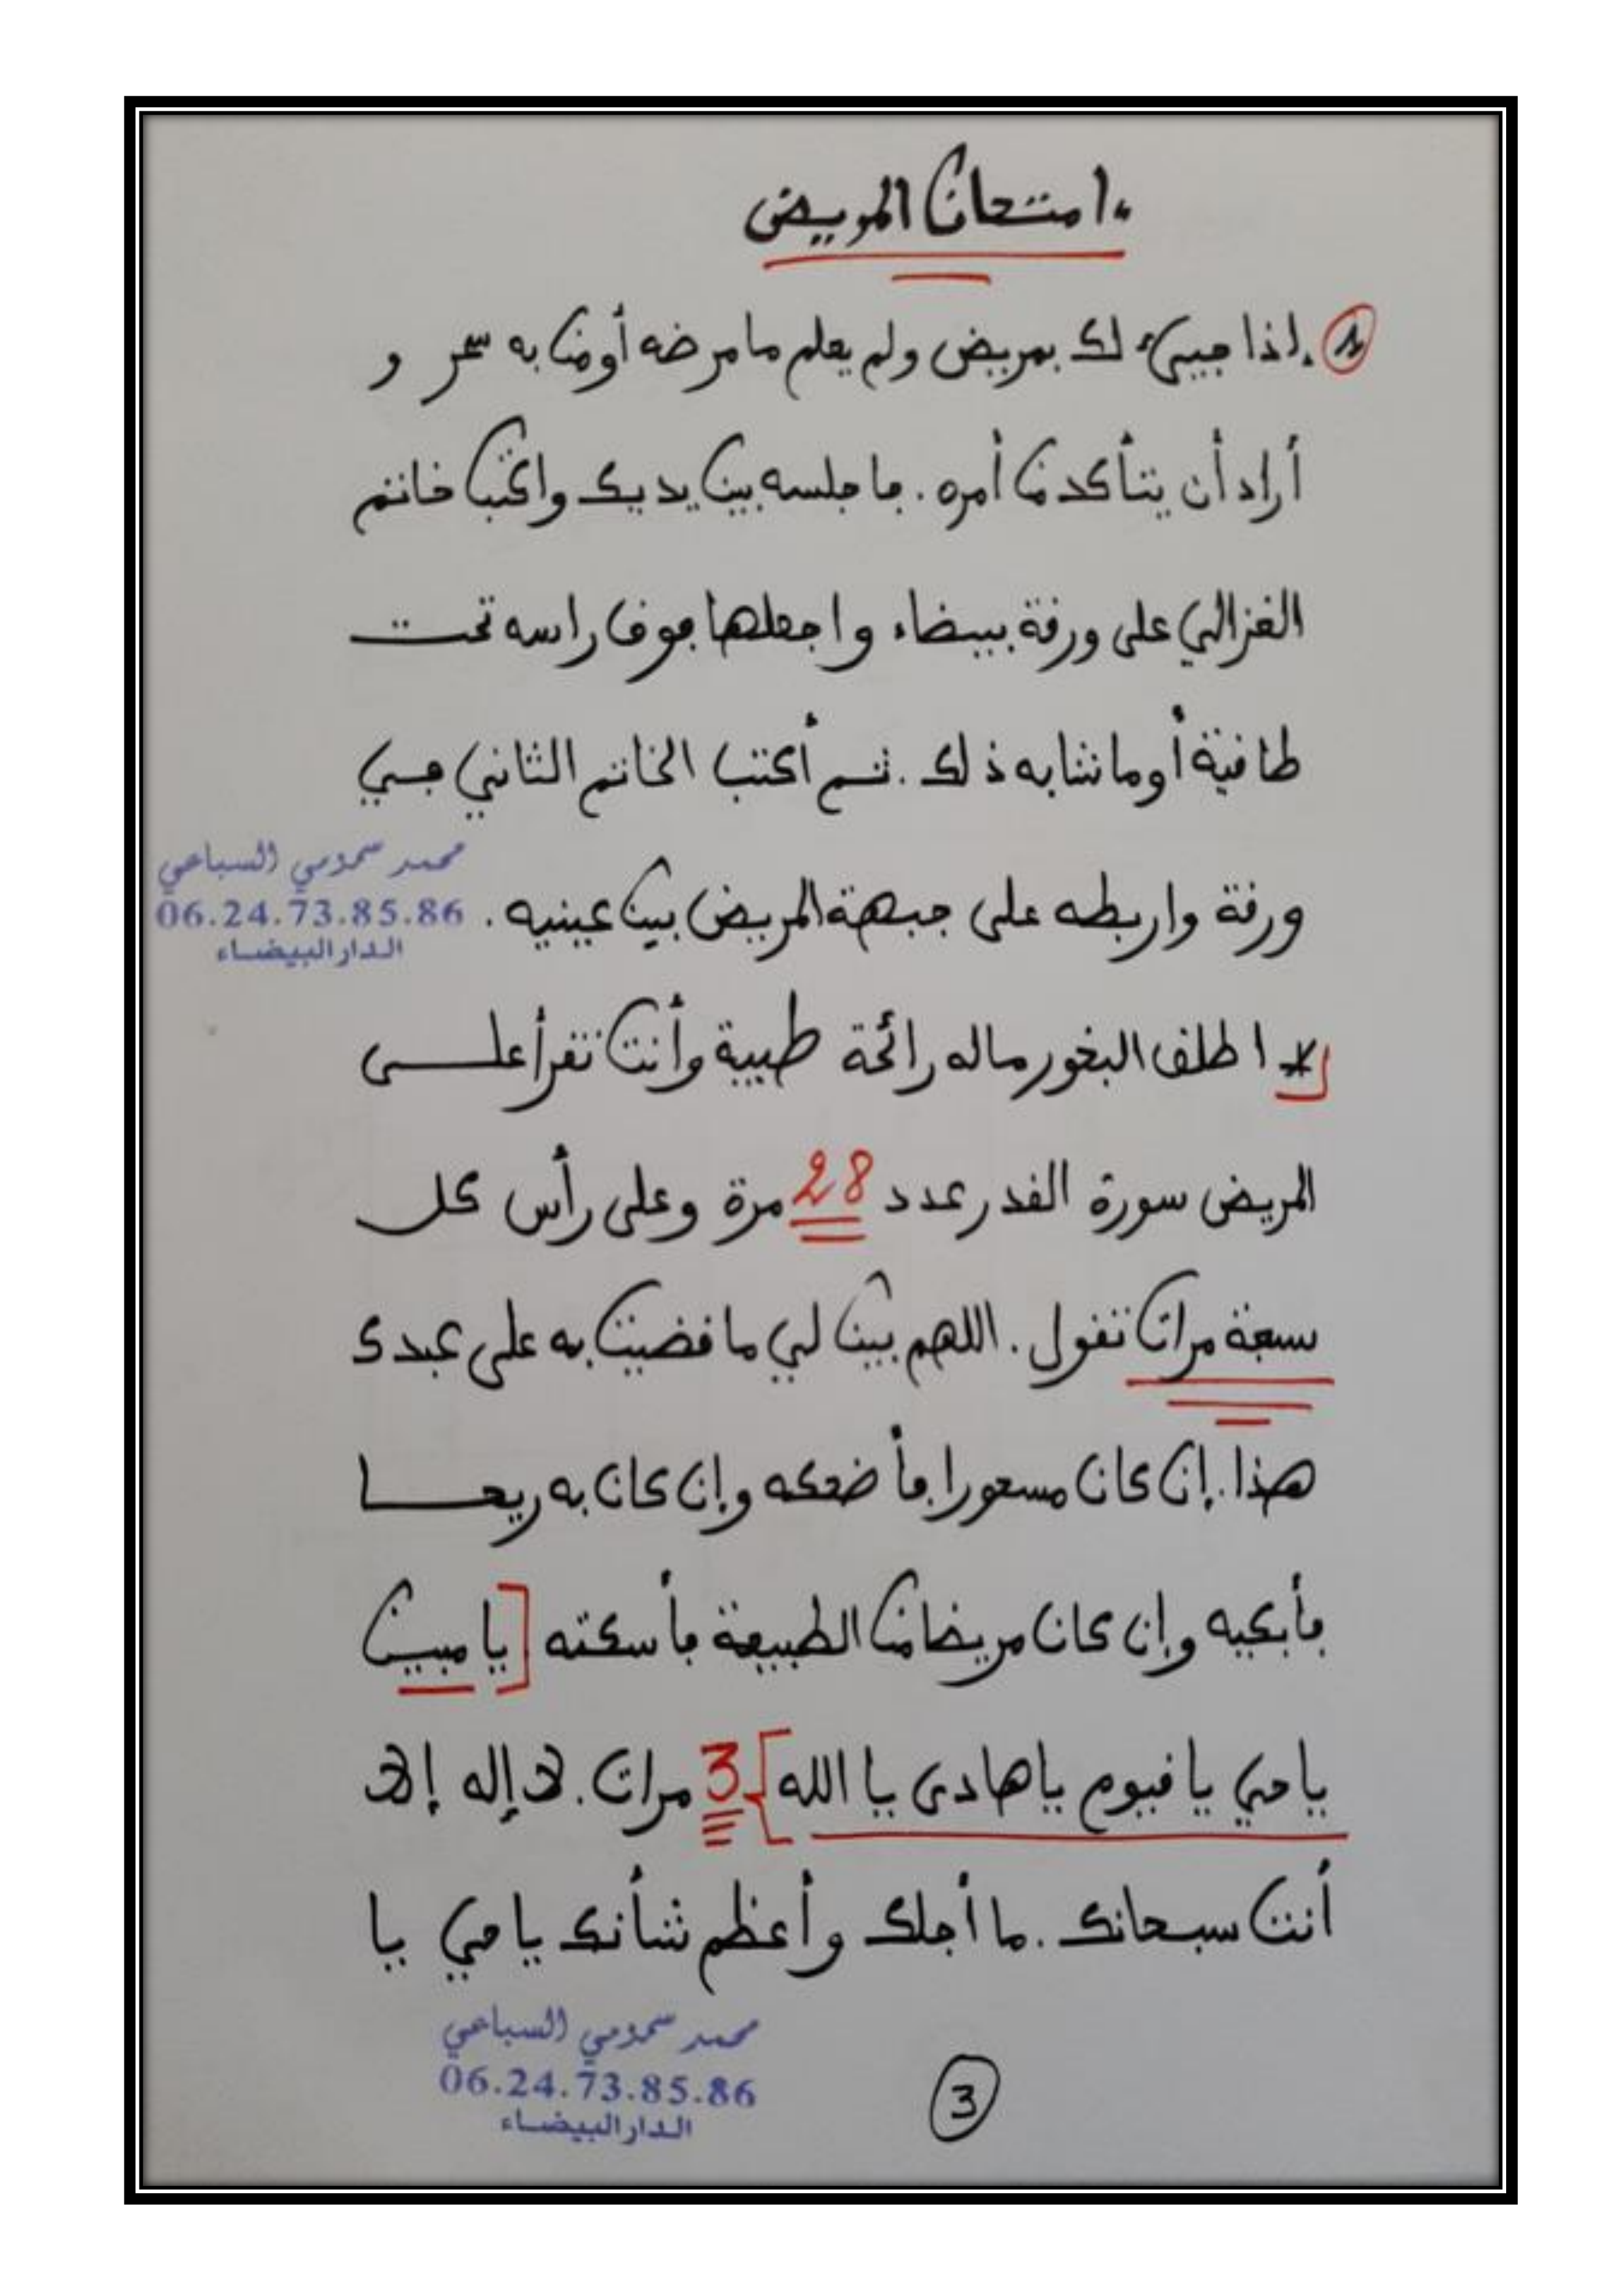 امتحان المريض
1 . إذا جيىء لك بمريض ولم يعلم ما مرضه أو من به سحر و
أراد أن يتأكد من أمره . فاجلسه بين يديك واكتب خاتم
الغزالي على ورقة بيضاء واجعلها فوق راسه تحت
طاقية أو ما شابه ذلك . ثم أكتب الخاتم الثاني في
ورقة واربطه على جبهة المريض بين عينيه .
محمد سمومي السباعي
06.24.73.85.86
الدار البيضاء
* اطلق البخور ماله رائحة طيبة وأنت تقرأ على
المريض سورة القدر عدد 28 مرة وعلى رأس كل
سبعة مرات تقول . اللهم بين لي ما قضيت به على عبدك
هذا . إن كان مسحورا فأضحكه وإن كان به ريحا
فأبكيه وإن كان مريضا من الطبيعة فأسكته [يا مبين
يا حي يا قيوم يا هادي يا الله] 3 مرات . لا إله إلا
أنت سبحانك . ما أجلك وأعظم شأنك يا حي يا
محمد سمومي السباعي
06.24.73.85.86
الدار البيضاء
3